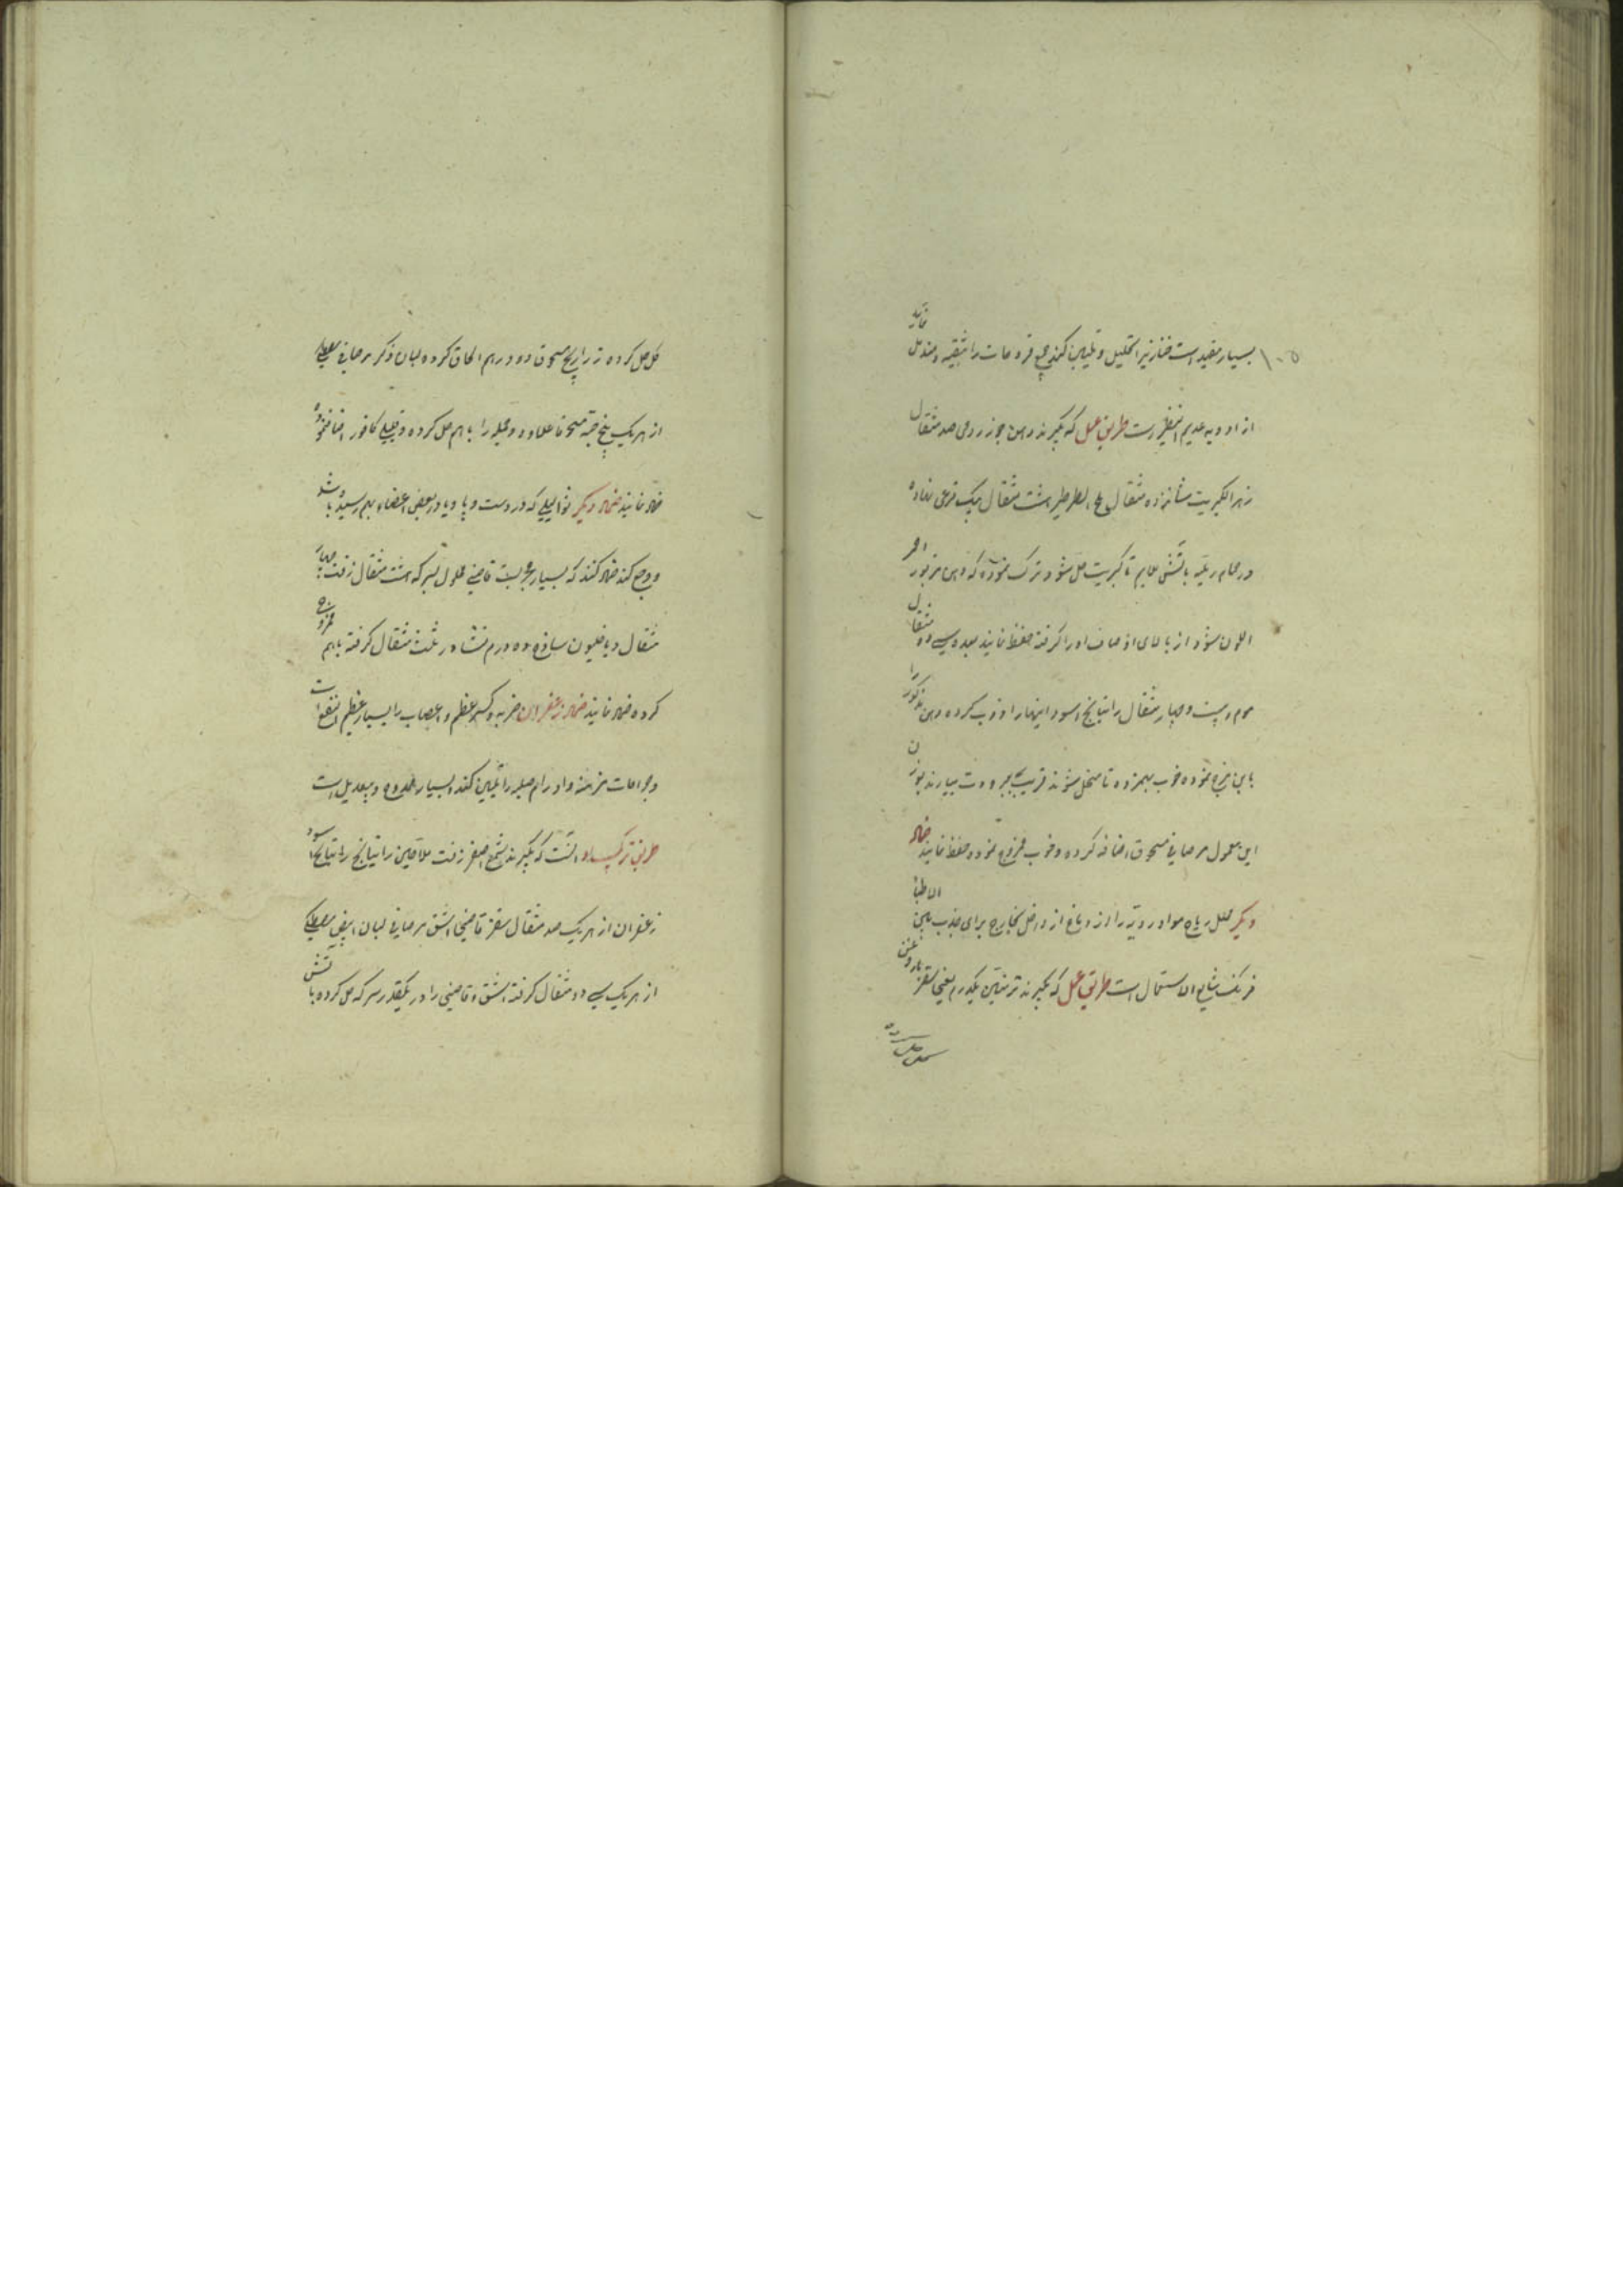 بسیار مفید است خنازیر را تحلیل و تلیین کند جمیع قروحات را تنقیه و مندمل نماید
از ادویه عدیم النظیر است طریق عمل که بگیرند دهن جوز رومی صد مثقال
زهر الکبریت شانزده مثقال ملح الطرطیر هشت مثقال بیک قرعی نهاده
در حمام رملیه باتش ملایم تا کبریت حل شود و ترک نموده که دهن مزبور احمر
اللون شود از بالای او صاف او را گرفته حفظ نمایند بعده سی و دو مثقال
موم و بیست و چهار مثقال راتیانج اسود اینها را ذوب کرده دهن مذکور را
باین مزج نموده خوب بهمزده تا منحل شوند قریب ببرودت بیارند بوزن
این معمول مرصافی مسحوق اضافه کرده و خوب ممزوج نموده حفظ نمایند ضماد
دیگر محلل ریاح مواد ردیه را از دماغ از داخل بخارج برای جذب بین الاطباء
فرنک شایع الاستعمال است طریق عمل که بگیرند ترمنتین یکدرم یعنی سقز باروغن
حل کرده ذراریح مسحوق دو درهم الحاق کرده لبان ذکر مرصافی مصطکی
از هریک پنج حبه مسحوقا علاوه و جمله را باهم حل کرده و قلیلی کافور اضافه نموده
ضماد نمایند ضماد دیگر ثوالیلی که در دست و پا و یا در بعض اعضاء بهم رسیده باشد
و وجع کند ضماد کنند که بسیار مجربست قاصنی محلول بسرکه هشت مثقال زفت چهار
مثقال دیاخلیون ساذج ده درم نشادر ثلث مثقال گرفته باهم ممزوج
کرده ضماد نمایند ضماد زعفران ضربه و کسر عظم و اعصاب را بسیار عظیم النفع است
و جراحات مزمنه و اورام صلبه را تلیین کند بسیار ممدوح و بیعدیل است
طریق ترکیب او آنست که بگیرند شمع اصفر زفت ملاحین راتیانج راتیانج اسود
زعفران از هریک صد مثقال سقز قاصنی اشق مرصافی لبان ابیض مصطکی
از هریک سی و دو مثقال گرفته اشق و قاصنی را در یکقدر سرکه حل کرده باتش